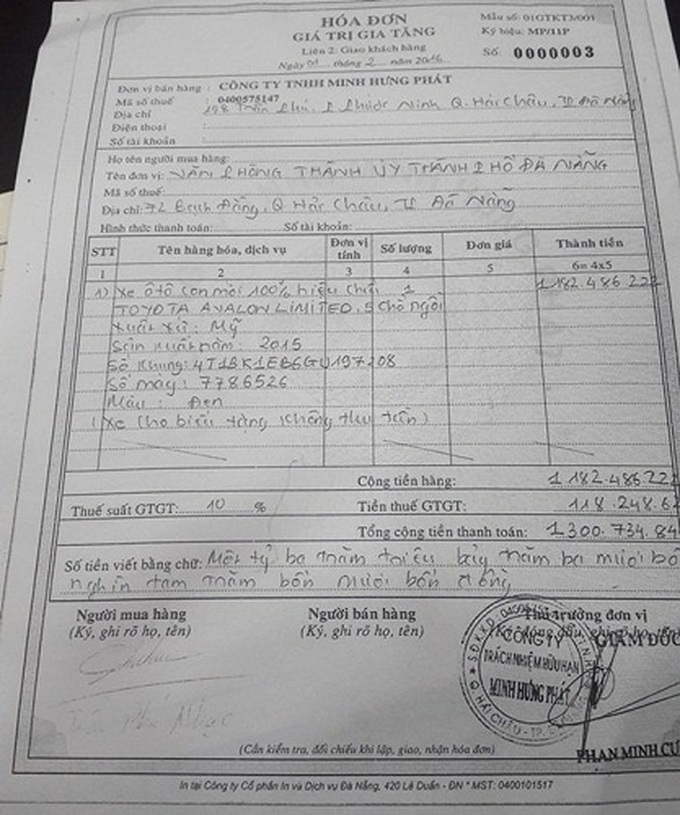 HÓA ĐƠN
GIÁ TRỊ GIA TĂNG
Liên 2: Giao khách hàng
Ngày 01 tháng 2 năm 2016
Mẫu số: 01GTKT3/001
Ký hiệu: MP/11P
Số: 0000003
Đơn vị bán hàng : CÔNG TY TNHH MINH HƯNG PHÁT
Mã số thuế : 0400575147
Địa chỉ : 198 Phước Ninh Q. Hải Châu, TP Đà Nẵng
Điện thoại :
Số tài khoản :
Họ tên người mua hàng:
Tên đơn vị: VĂN PHÒNG THÀNH ỦY THÀNH PHỐ ĐÀ NẴNG
Mã số thuế:
Địa chỉ: 72 Bạch Đằng, Q Hải Châu, TP Đà Nẵng
Hình thức thanh toán: Số tài khoản:
STT Tên hàng hóa, dịch vụ Đơn vị tính Số lượng Đơn giá Thành tiền
1 2 3 4 5 6= 4x5
1) Xe ôtô con mới 100% hiệu chiếc 1 1.182.486.222
TOYOTA AVALON LIMITED, 5 chỗ ngồi
Xuất xứ: Mỹ
Sản xuất năm: 2015
Số khung: 4T1BK1EB5GU197208
Số máy: 7786526
Màu : Đen
(Xe cho biếu tặng không thu tiền)
Cộng tiền hàng: 1.182.486.222
Thuế suất GTGT: 10 % Tiền thuế GTGT: 118.248.62
Tổng cộng tiền thanh toán: 1.300.734.84
Số tiền viết bằng chữ: Một tỷ ba trăm triệu bảy trăm ba mươi bố
nghìn tám trăm bốn mươi bốn đồng
Người mua hàng Người bán hàng Thủ trưởng đơn vị
(Ký, ghi rõ họ, tên) (Ký, ghi rõ họ, tên)
GIÁM ĐỐC
CÔNG TY
TRÁCH NHIỆM HỮU HẠN
MINH HƯNG PHÁT
Q. HẢI CHÂU - TP.
PHAN MINH CƯ
(Cần kiểm tra, đối chiếu khi lập, giao, nhận hóa đơn)
In tại Công ty Cổ phần In và Dịch vụ Đà Nẵng, 420 Lê Duẩn - ĐN * MST: 0400101517